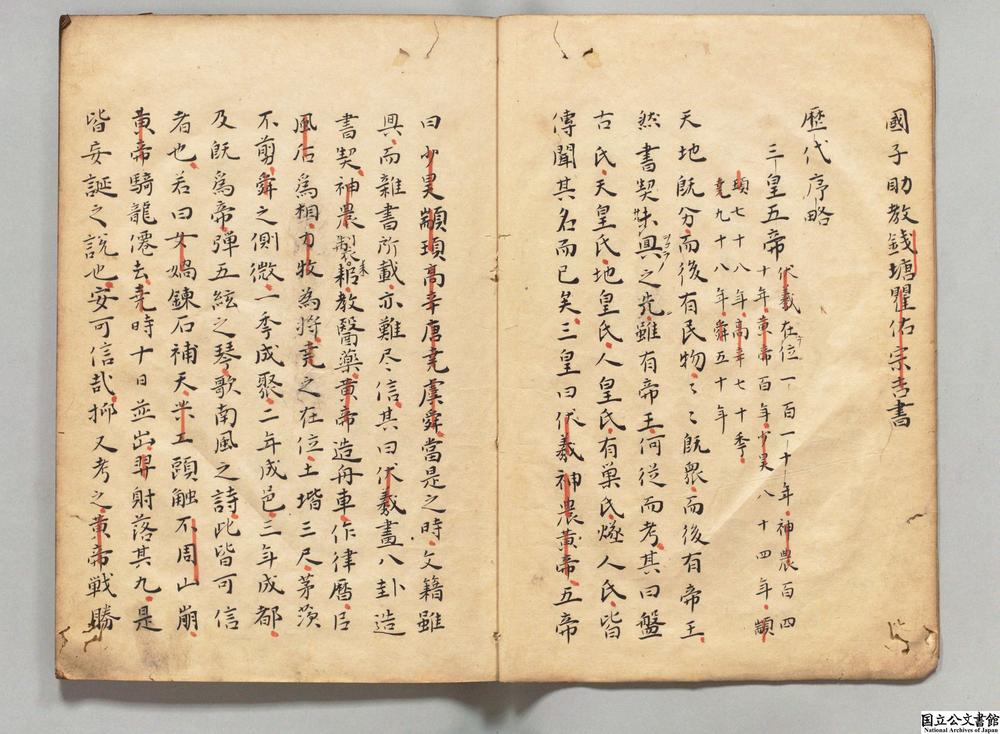 國子助教錢塘瞿佑宗吉書
歷代序略
三皇五帝
伏羲在位一百一十年神農百四
十年黄帝百年少昊八十四年顓
頊七十八年高辛七十季
堯九十八年舜五十年
天地既分而後有民物〻〻既衆而後有帝王
然書契未興之先雖有帝王何從而考其曰盤
古氏天皇氏地皇氏人皇氏有巢氏燧人氏皆
傳聞其名而已矣三皇曰伏羲神農黄帝五帝
曰少昊顓頊高辛唐堯虞舜當是之時文籍雖
興而雜書所載亦難尽信其曰伏羲畫八卦造
書契神農製耜教醫藥黄帝造舟車作律曆臣
風后為相力牧為将堯之在位土堦三尺茅茨
不剪舜之側微一季成聚二年成邑三年成都
及既為帝彈五絃之琴歌南風之詩此皆可信
者也若曰女媧鍊石補天共工頭触不周山崩
黄帝騎龍僊去堯時十日並出羿射落其九是
皆妄誕之説也安可信哉抑又考之黄帝戦勝
国立公文書館
National Archives of Japan